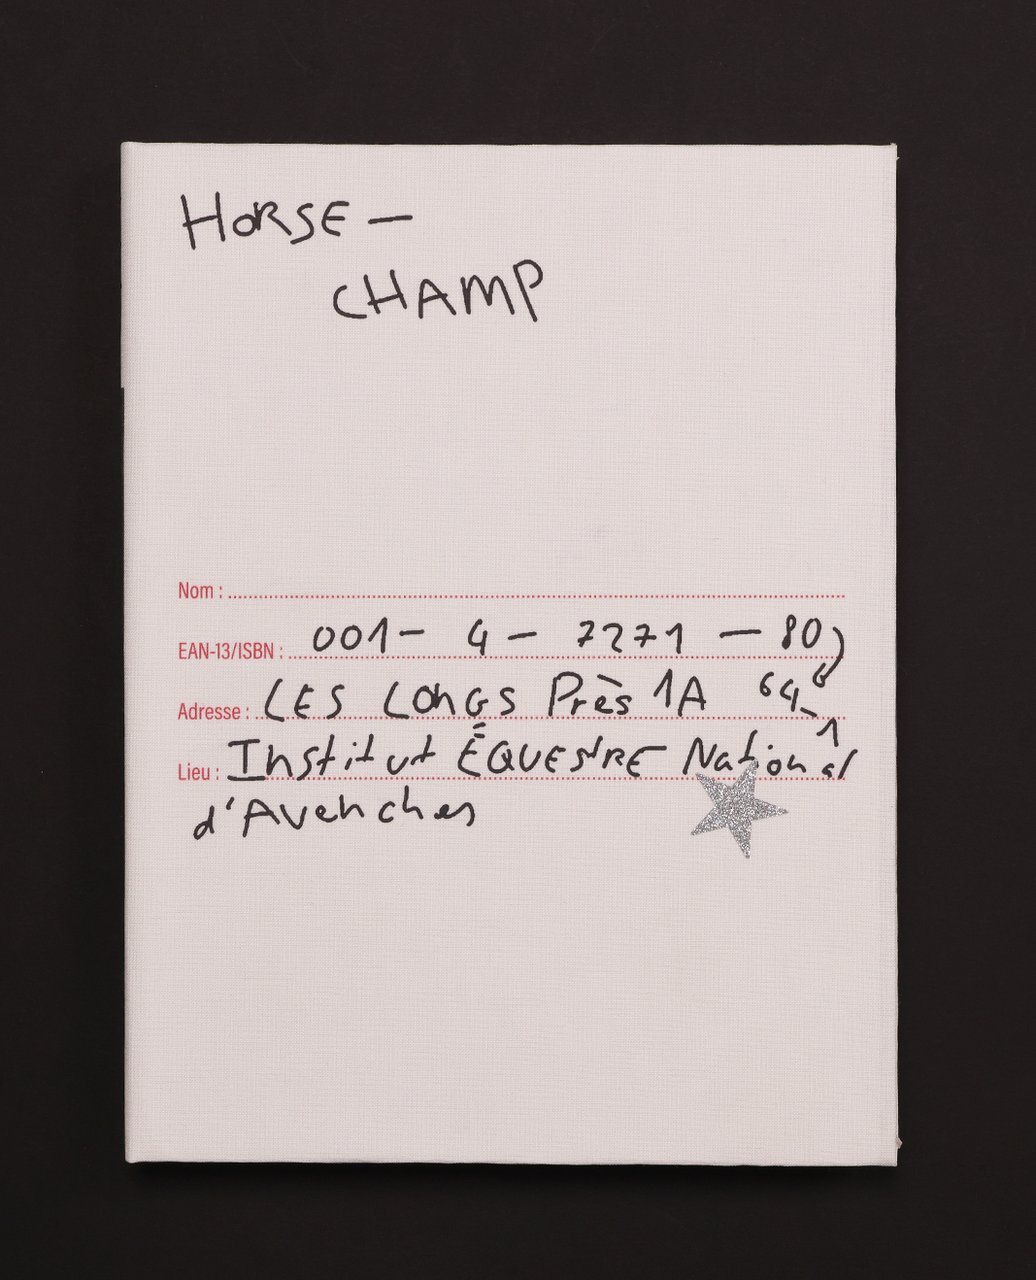 HORSE –
CHAMP
Nom :
EAN-13/ISBN : 001 – 4 – 7271 – 80
Adresse : LES LONGS Près 1A 64
Lieu : Institut ÉQUESTRE National
d'Avenches